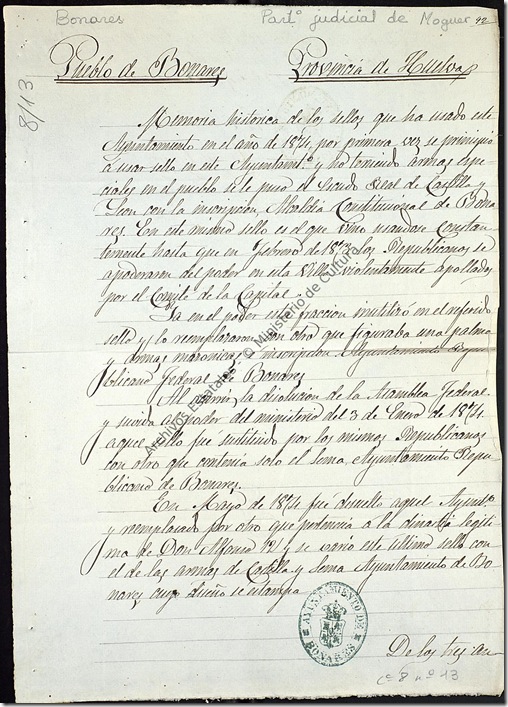 Bonares
Partº judicial de Moguer 92
8/13
Pueblo de Bonares
Provincia de Huelva
Memoria historica de los sellos que ha usado este
Ayuntamiento en el año de 1874, por primera vez se principió
á usar sello en este Ayuntamtº y no teniendo armas espe-
ciales en el pueblo se le puso el Escudo Real de Castilla y
Leon con la inscripcion, Alcaldia Constitucional de Bona-
res. En este mismo sello es el que vino usandose Constan-
temente hasta que en Febrero de 1873 los Republicanos se
apoderaron del poder en esta Villa violentamente apollados
por el Comité de la Capital.
Ya en el poder esta fraccion inutilizó en el referido
sello y lo remplazaron con otro que figuraba una palma
y armas masonicas, é inscripcion Ayuntamiento Repu-
blicano Federal de Bonares
Al ocurrir la disolucion de la Asamblea Federal
y suvida al poder del ministerio del 3 de Enero de 1874
aquel sello fue sustituido por los mismos Republicanos
con otro que contenia solo el lema, Ayuntamiento Repu-
blicano de Bonares.
En Mayo de 1874 fué desuelto aquel Ayuntº
y reemplazado por otro que pertencia a la dinastia legiti-
ma de Don Alfonso 12 y se varió este ultimo sello con
el de las armas de Castilla y lema Ayuntamiento de Bo-
nares cuyo diseño se estampa
AYUNTAMIENTO DE
BONARES
De los tres an-
cª 8 nº 13
Archivos Estatales - © Ministerio de Cultura